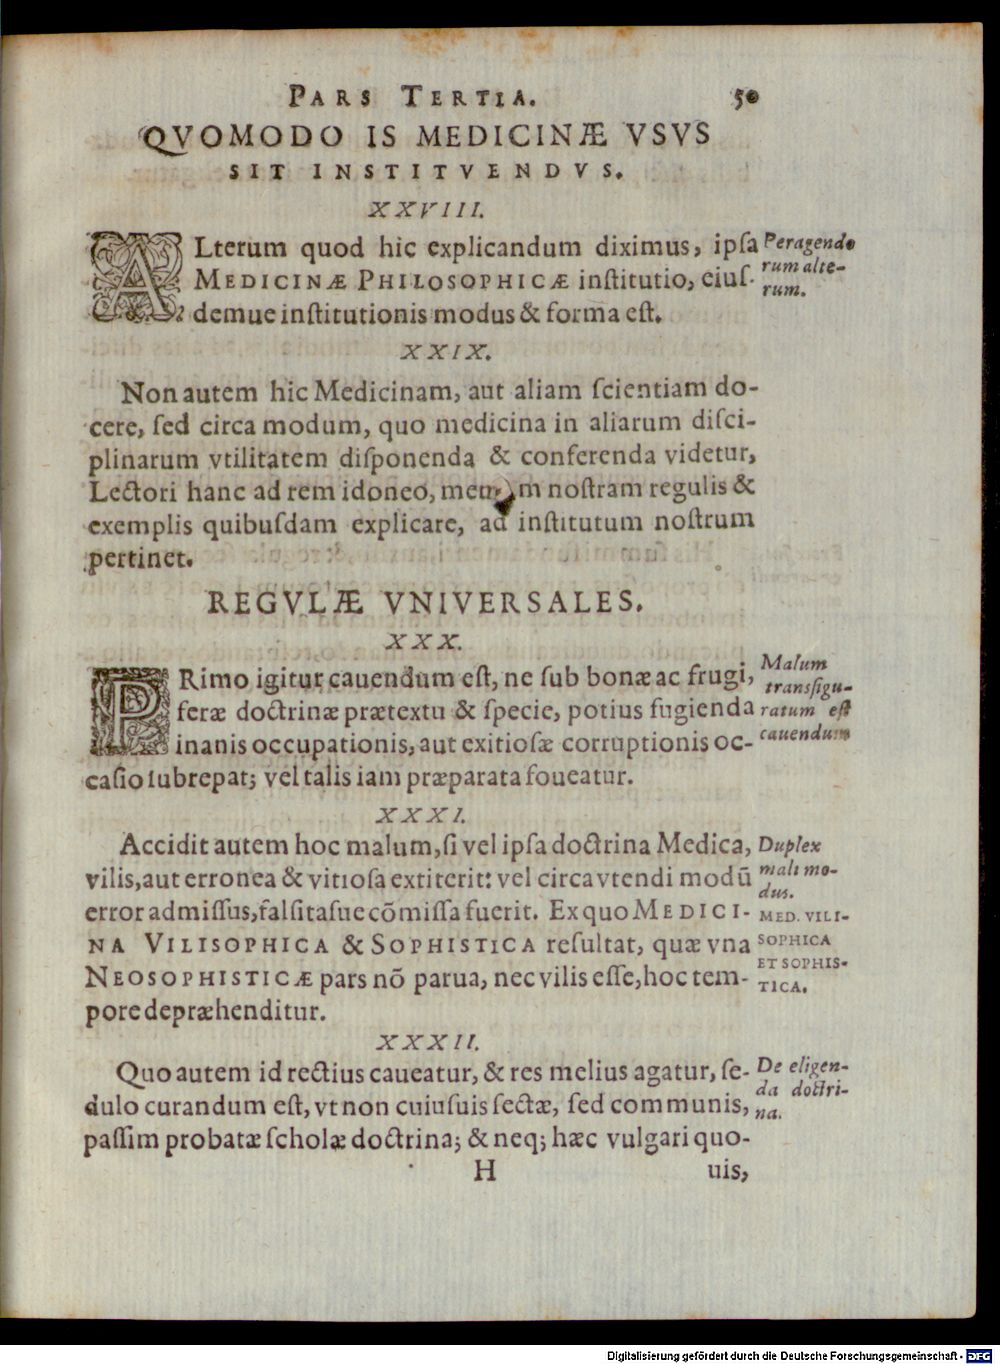 PARS TERTIA. 50
QVOMODO IS MEDICINÆ VSVS
SIT INSTITVENDVS.
XXVIII.
ALterum quod hic explicandum diximus, ipſa
MEDICINÆ PHILOSOPHICÆ inſtitutio, eiuſ-
demue inſtitutionis modus & forma eſt.
Peragendo
rum alte-
rum.
XXIX.
Non autem hic Medicinam, aut aliam ſcientiam do-
cere, ſed circa modum, quo medicina in aliarum diſci-
plinarum vtilitatem diſponenda & conferenda videtur,
Lectori hanc ad rem idoneo, noſtram regulis &
exemplis quibuſdam explicare, ad inſtitutum noſtrum
pertinet.
REGVLÆ VNIVERSALES.
XXX.
PRimo igitur cauendum eſt, ne ſub bonæ ac frugi,
feræ doctrinæ prætextu & ſpecie, potius fugienda
inanis occupationis, aut exitioſæ corruptionis oc-
caſio ſubrepat; vel talis iam præparata foueatur.
Malum
transfigu-
ratum eſt
cauendum
XXXI.
Accidit autem hoc malum, ſi vel ipſa doctrina Medica,
vilis, aut erronea & vitioſa extiterit: vel circa vtendi modū
error admiſſus, falſitaſue cōmiſſa fuerit. Ex quo MEDICI-
NA VILISOPHICA & SOPHISTICA reſultat, quæ vna
NEOSOPHISTICÆ pars nō parua, nec vilis eſſe, hoc tem-
pore depræhenditur.
Duplex
mali mo-
dus.
MED. VILI-
SOPHICA
ET SOPHIS-
TICA.
XXXII.
Quo autem id rectius caueatur, & res melius agatur, ſe-
dulo curandum eſt, vt non cuiuſuis ſectæ, ſed communis,
paſſim probatæ ſcholæ doctrina; & neq; hæc vulgari quo-
De eligen-
da doctri-
na.
H uis,
Digitalisierung gefördert durch die Deutsche Forschungsgemeinschaft - DFG